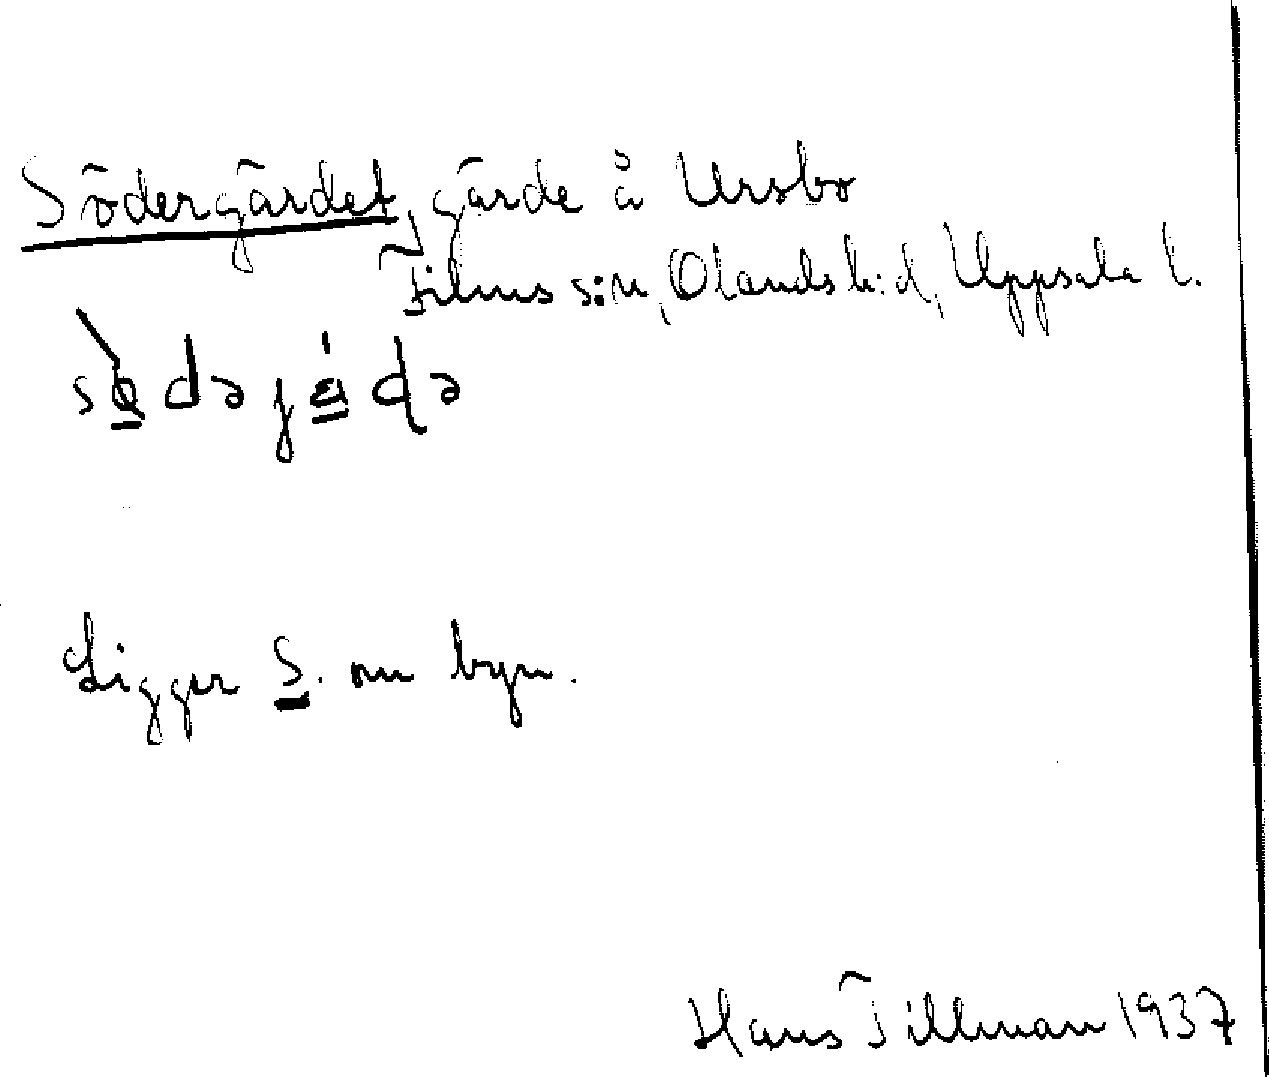 Södergärdet, gärde å Ursbo
Films s:n, Olands h:d, Uppsala l.
sø̀dəjáɖə
Ligger S. om byn.
Hans Tillman 1937